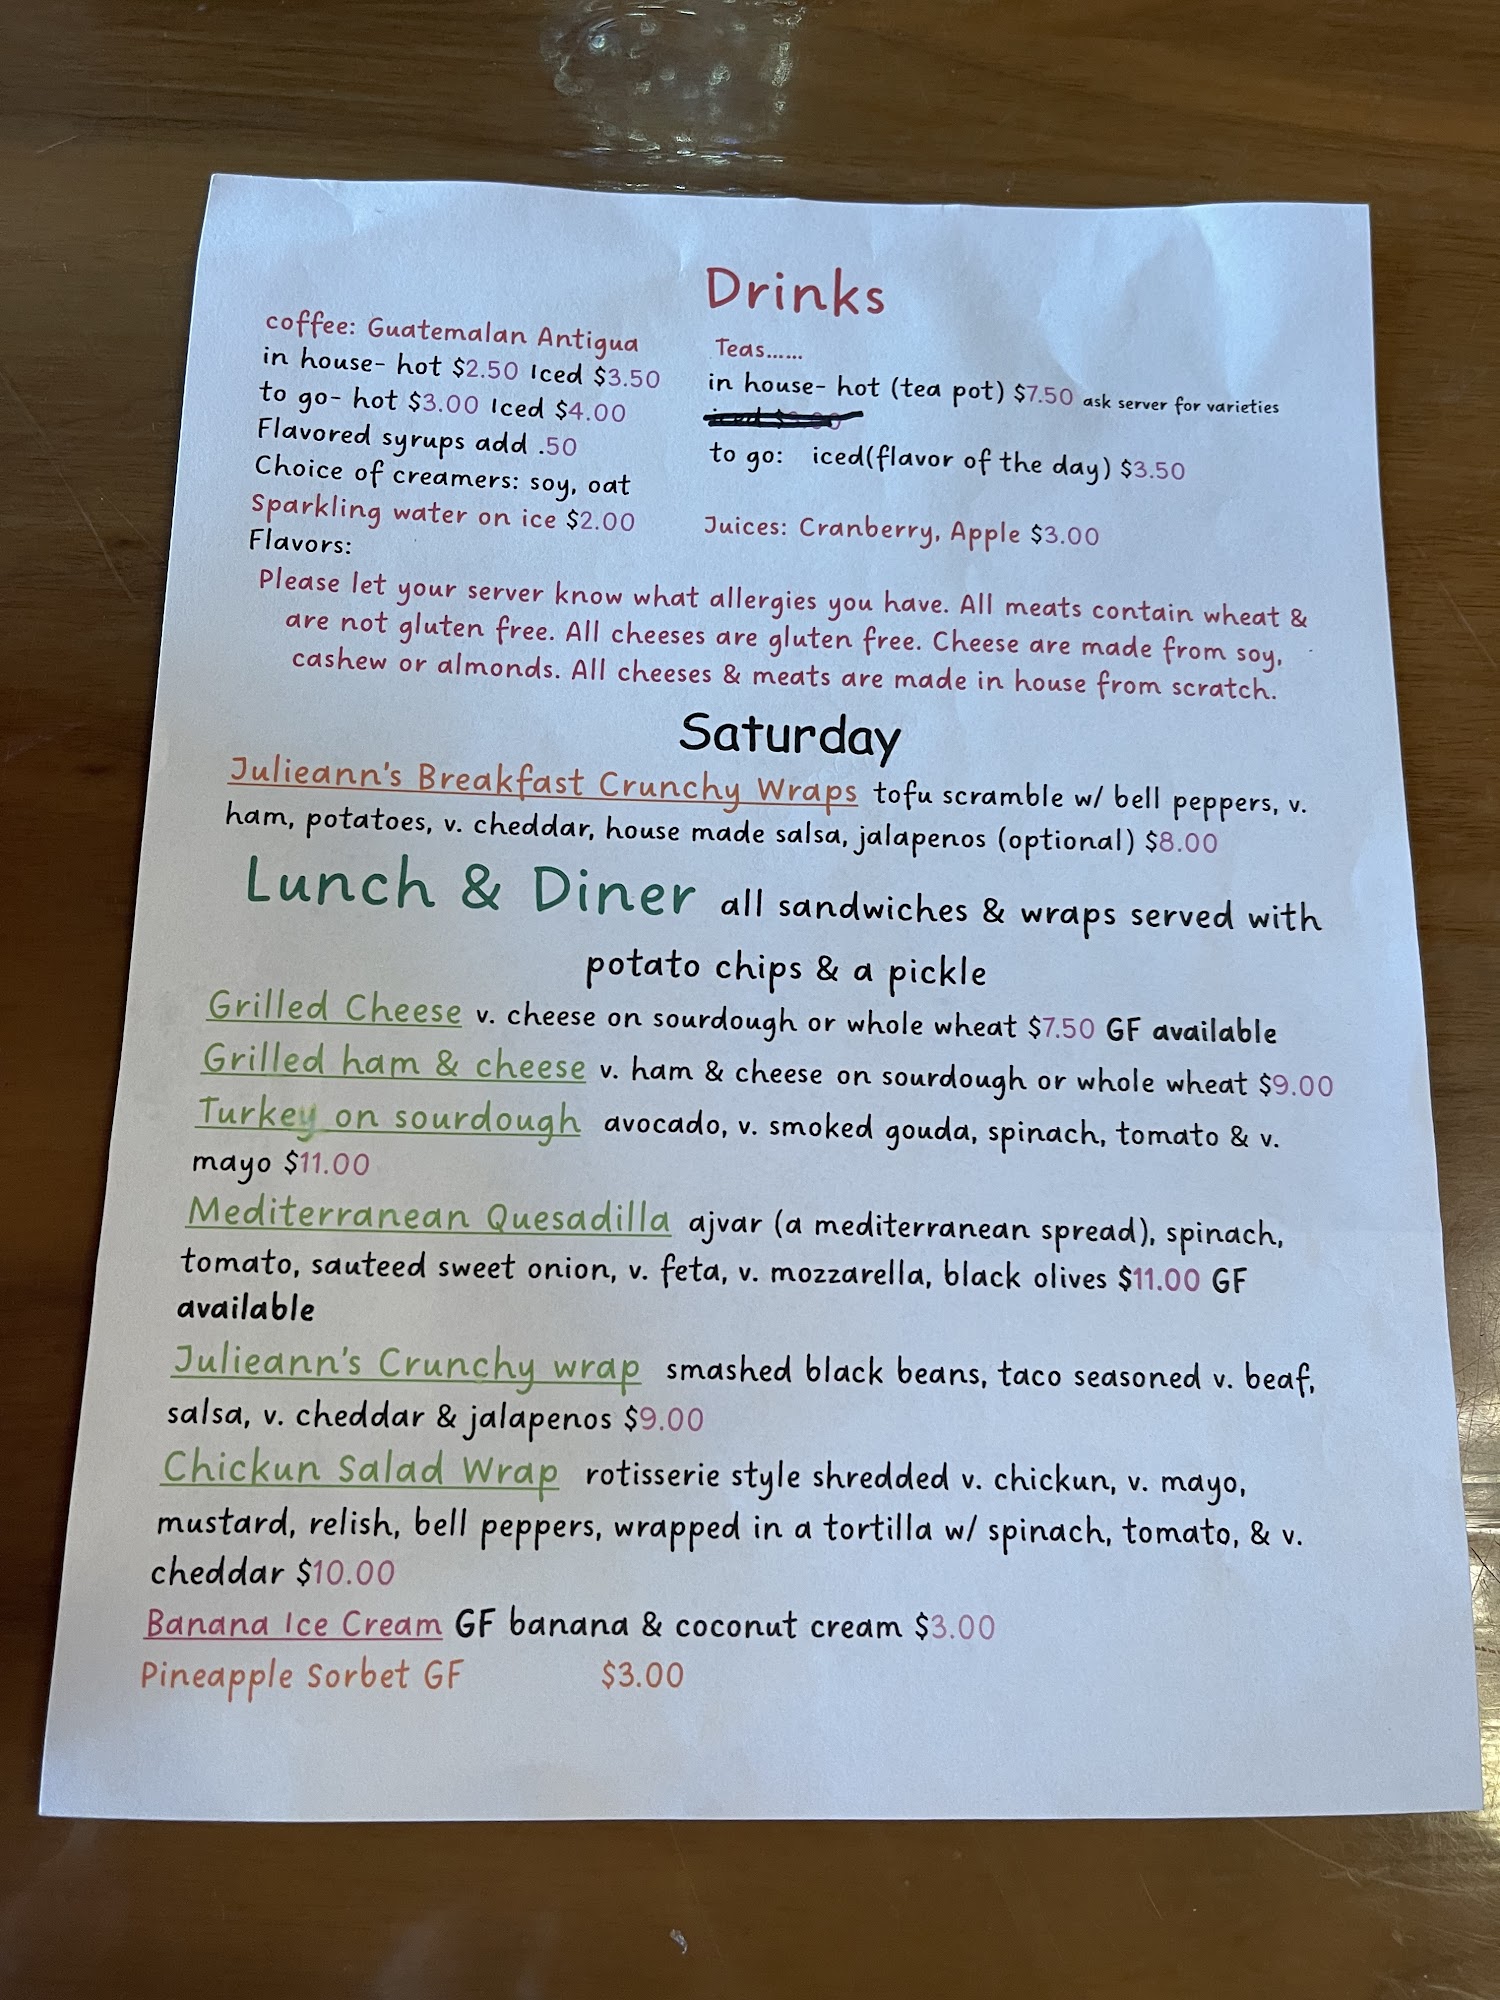 Drinks
coffee: Guatemalan Antigua
in house- hot $2.50 Iced $3.50
to go- hot $3.00 Iced $4.00
Flavored syrups add .50
Choice of creamers: soy, oat
Sparkling water on ice $2.00
Flavors:
Teas......
in house- hot (tea pot) $7.50 ask server for varieties
to go: iced(flavor of the day) $3.50
Juices: Cranberry, Apple $3.00
Please let your server know what allergies you have. All meats contain wheat &
are not gluten free. All cheeses are gluten free. Cheese are made from soy,
cashew or almonds. All cheeses & meats are made in house from scratch.
Saturday
Julieann's Breakfast Crunchy Wraps tofu scramble w/ bell peppers, v.
ham, potatoes, v. cheddar, house made salsa, jalapenos (optional) $8.00
Lunch & Diner all sandwiches & wraps served with
potato chips & a pickle
Grilled Cheese v. cheese on sourdough or whole wheat $7.50 GF available
Grilled ham & cheese v. ham & cheese on sourdough or whole wheat $9.00
Turkey on sourdough avocado, v. smoked gouda, spinach, tomato & v.
mayo $11.00
Mediterranean Quesadilla ajvar (a mediterranean spread), spinach,
tomato, sauteed sweet onion, v. feta, v. mozzarella, black olives $11.00 GF
available
Julieann's Crunchy wrap smashed black beans, taco seasoned v. beaf,
salsa, v. cheddar & jalapenos $9.00
Chickun Salad Wrap rotisserie style shredded v. chickun, v. mayo,
mustard, relish, bell peppers, wrapped in a tortilla w/ spinach, tomato, & v.
cheddar $10.00
Banana Ice Cream GF banana & coconut cream $3.00
Pineapple Sorbet GF $3.00